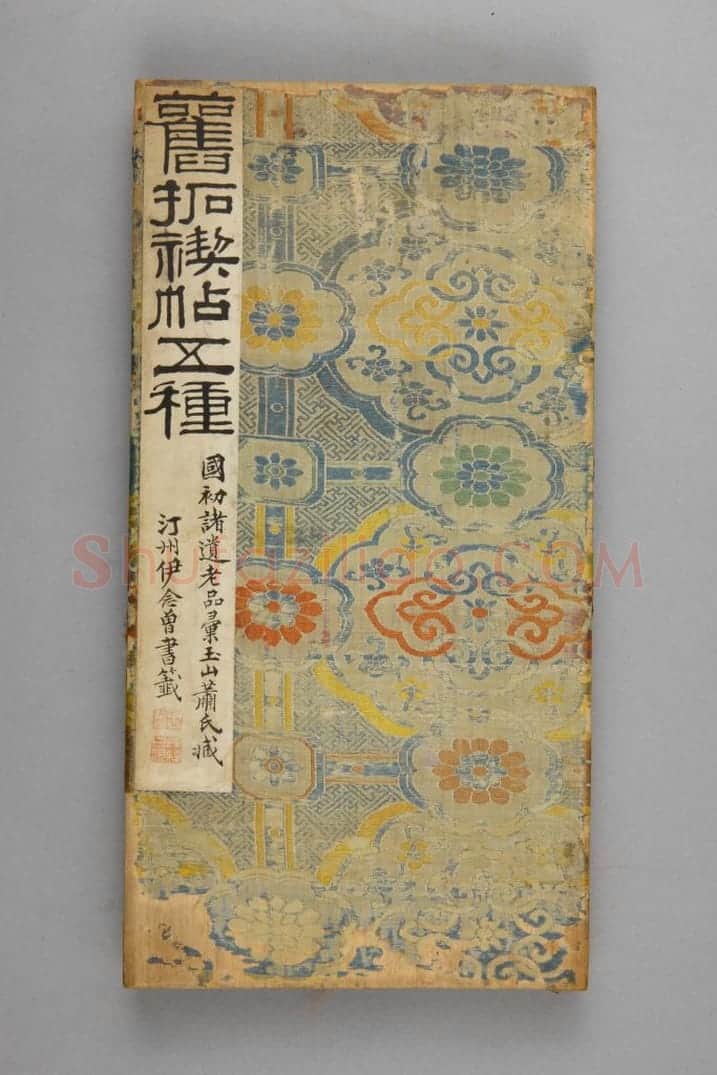 舊拓禊帖五種
國初諸遺老品彙玉山蕭氏臧
汀州伊念曾書籤
Shufaziliao.COM